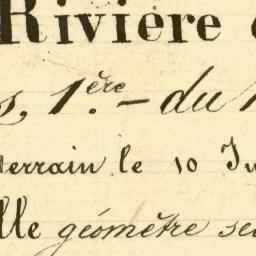 Rivière
1.ère - du
terrain le 10
géomètre